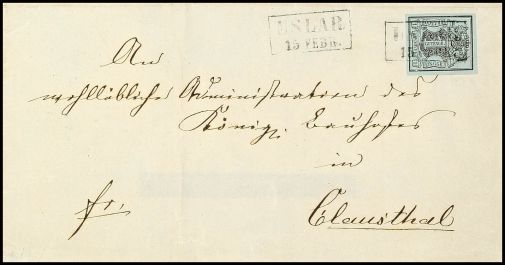 USLAR
15 FEBR.
An
wohllöbliche Administration des
Königl. Bauhofes
in
fr. Clausthal